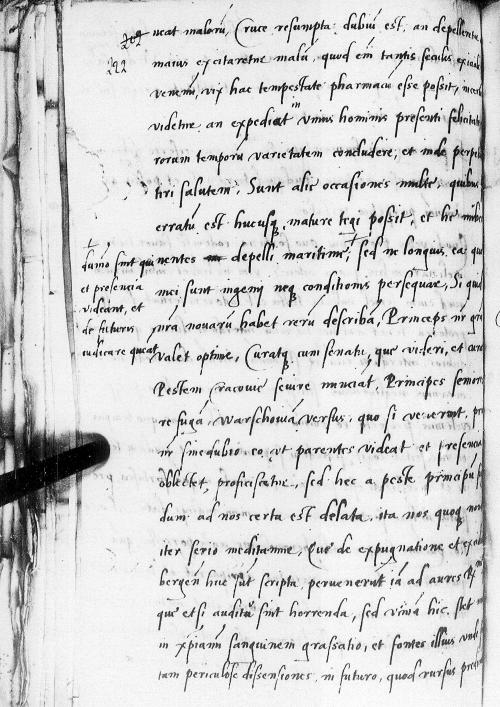 202
222
neat maloru, Cruce resumpta. dubiu est, an depellentu
maius excitaretur malu, quod em tantis seculis exiale
venenu, vix hac tempestate pharmacu esse possit, incert
videtur an expediat in unius hominis presenti felicitate
rorum temporu varietatem concludere, et inde perpe
tiri salutem. Sunt alie occasiones multe, quibus
erratu est hucusq mature tegi possit, et hec nube
nentes depelli maritime, sed ne longius ea que
mei sunt ingenij neq conditionis persequar, Si quid
nra novaru habet reru describa, Princeps nr gra
valet optime, Curatq cum senatu, que videri, et cura
Pestem Cracovie sevire nunciat, Principes semore
re fuga, Warschovia versus, quo si venerint, pri
nr sine dubio eo ut parentes videat et presencia
oblectet, proficiscatur, sed hec a peste principu
dum ad nos certa est delata, ita nos quoq non
iter serio meditamur, Que de expugnatione et exci
bergen huc sut scripta, pervenerut ia ad aures
que etsi auditu sint horrenda, sed utina hic stet
in xpianu sanguinem grassatio, et fontes illius undi
tam periculose dissensiones, in futuro, quod rursus pre
dumo sint qui
et presencia
videant, et
de futuris
iudicare queat